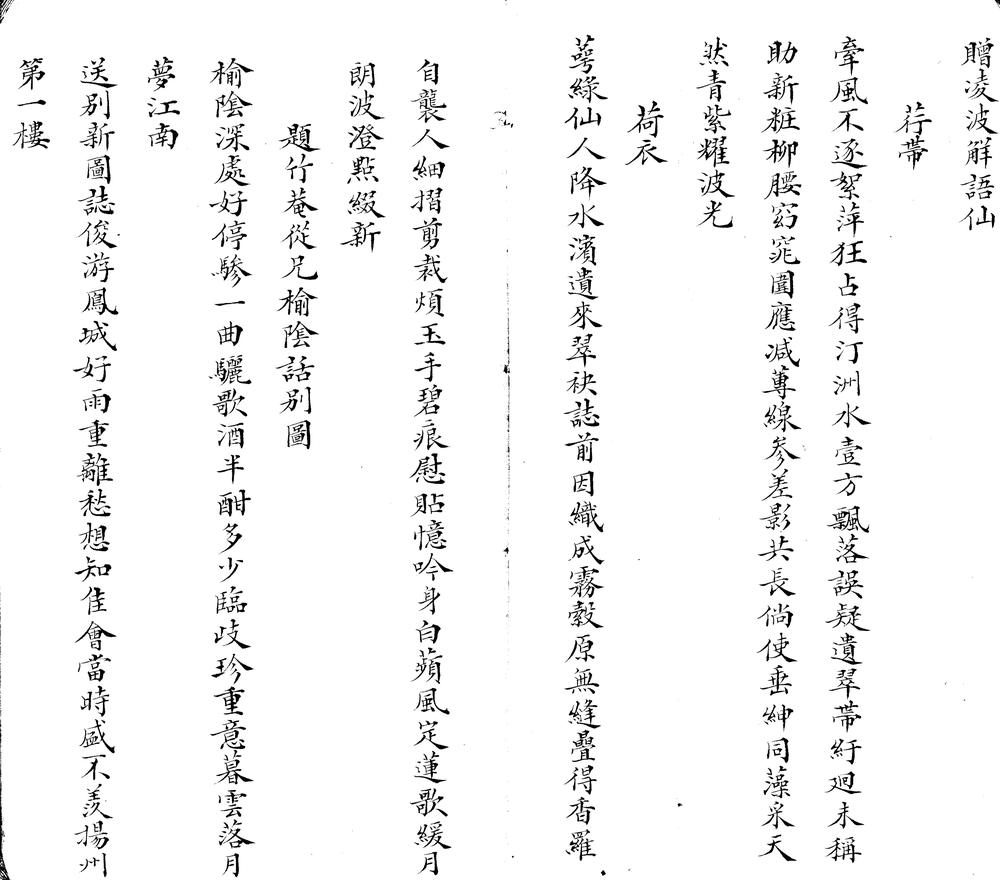 贈凌波解語仙
荇帶
牽風不逐絮萍狂占得汀洲水壹方飄落誤疑遺翠帶紆廻未稱
助新粧柳腰窈窕圍應減蓴線參差影共長倘使垂紳同藻采天
然青紫耀波光
荷衣
萼綠仙人降水濱遺來翠袂誌前因織成霧縠原無縫疊得香羅
自襲人細摺剪裁煩玉手碧痕慰貼憶吟身白蘋風定蓮歌緩月
朗波澄點綴新
題竹菴從兄榆陰話別圖
榆陰深處好停驂一曲驪歌酒半酣多少臨歧珍重意暮雲落月
夢江南
送別新圖誌俊游鳳城好雨重離愁想知佳會當時盛不羨揚州
第一樓